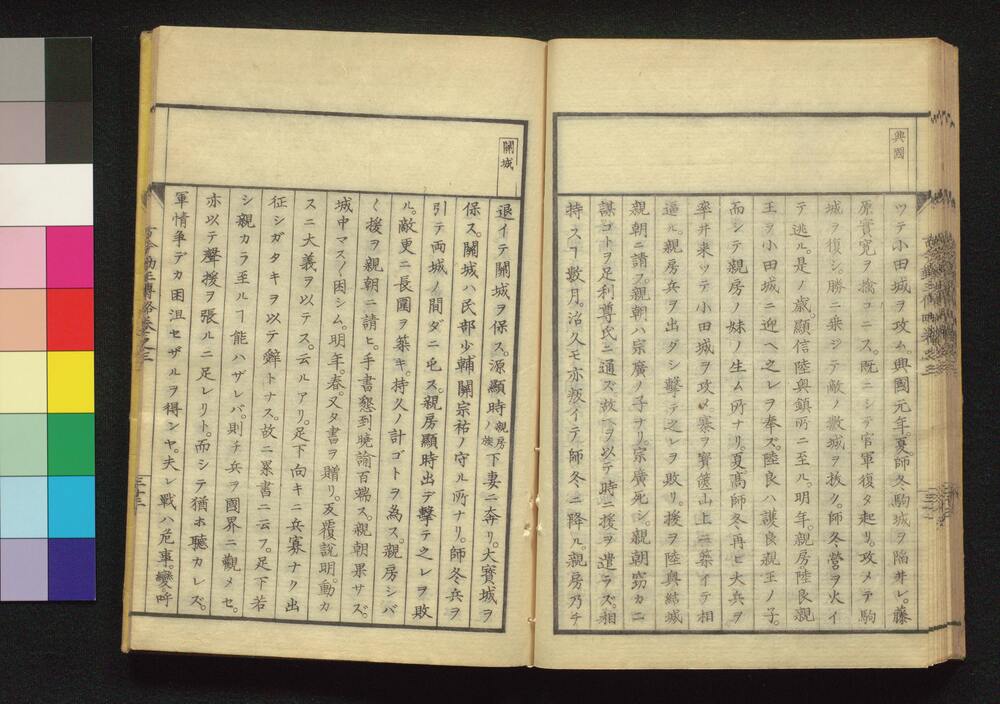 興國
ツテ小田城ヲ攻ム興國元年。夏。師冬駒城ヲ陥井レ。藤
原實寛ヲ擒コニス。既ニシテ官軍復タ起リ。攻メテ駒
城ヲ復シ。勝ニ乗ジテ敵ノ數城ヲ抜ク。師冬營ヲ火イ
テ逃ル。是ノ歳。顯信陸奥鎮所ニ至ル。明年。親房。陸良親
王ヲ小田城ニ迎ヘ之レヲ奉ズ。陸良ハ護良親王ノ子。
而シテ親房ノ妹ノ生ム所ナリ。夏。高師冬再ビ大兵ヲ
率井来ツテ小田城ヲ攻メ。寨ヲ寳篋山上ニ築イテ相
逼ル。親房兵ヲ出ダシ擊テ之レヲ敗リ。援ヲ陸奥結城
親朝ニ請フ。親朝ハ宗廣ノ子ナリ。宗廣死シ。親朝窃カニ
謀ゴトヲ足利尊氏ニ通ズ。故ヲ以テ時ニ援ヲ遣ラズ。相
持スヿ數月。治久モ亦叛イテ師冬ニ降ル。親房乃チ
關城
退イテ關城ヲ保ス。源顯時親房ノ族下妻ニ奔リ。大寳城ヲ
保ス。關城ハ民部少輔關宗祐ノ守ル所ナリ。師冬兵ヲ
引テ両城ノ間ダニ屯ス。親房顯時出デ擊テ之レヲ敗
ル。敵更ニ長圍ヲ築キ。持久ノ計ゴトヲ為ス。親房シバ
〱援ヲ親朝ニ請ヒ。手書懇到曉諭百端ス。親朝果サズ。
城中マス〱困シム。明年。春。又タ書ヲ贈リ。反覆説明。動カ
スニ大義ヲ以テス。云ルアリ。足下向キニ兵寡ナク出
征シガタキヲ以テ辭トナス。故ニ累書ニ云フ。足下若
シ親カラ至ルヿ能ハザレバ。則チ兵ヲ國界ニ觀メセ。
亦以テ聲援ヲ張ルニ足レリト。而シテ猶ホ聴カレズ。
軍情争デカ困沮セザルヲ得ンヤ。夫レ戰ハ危事。變呼
古今勤王傳略卷之三
三十二